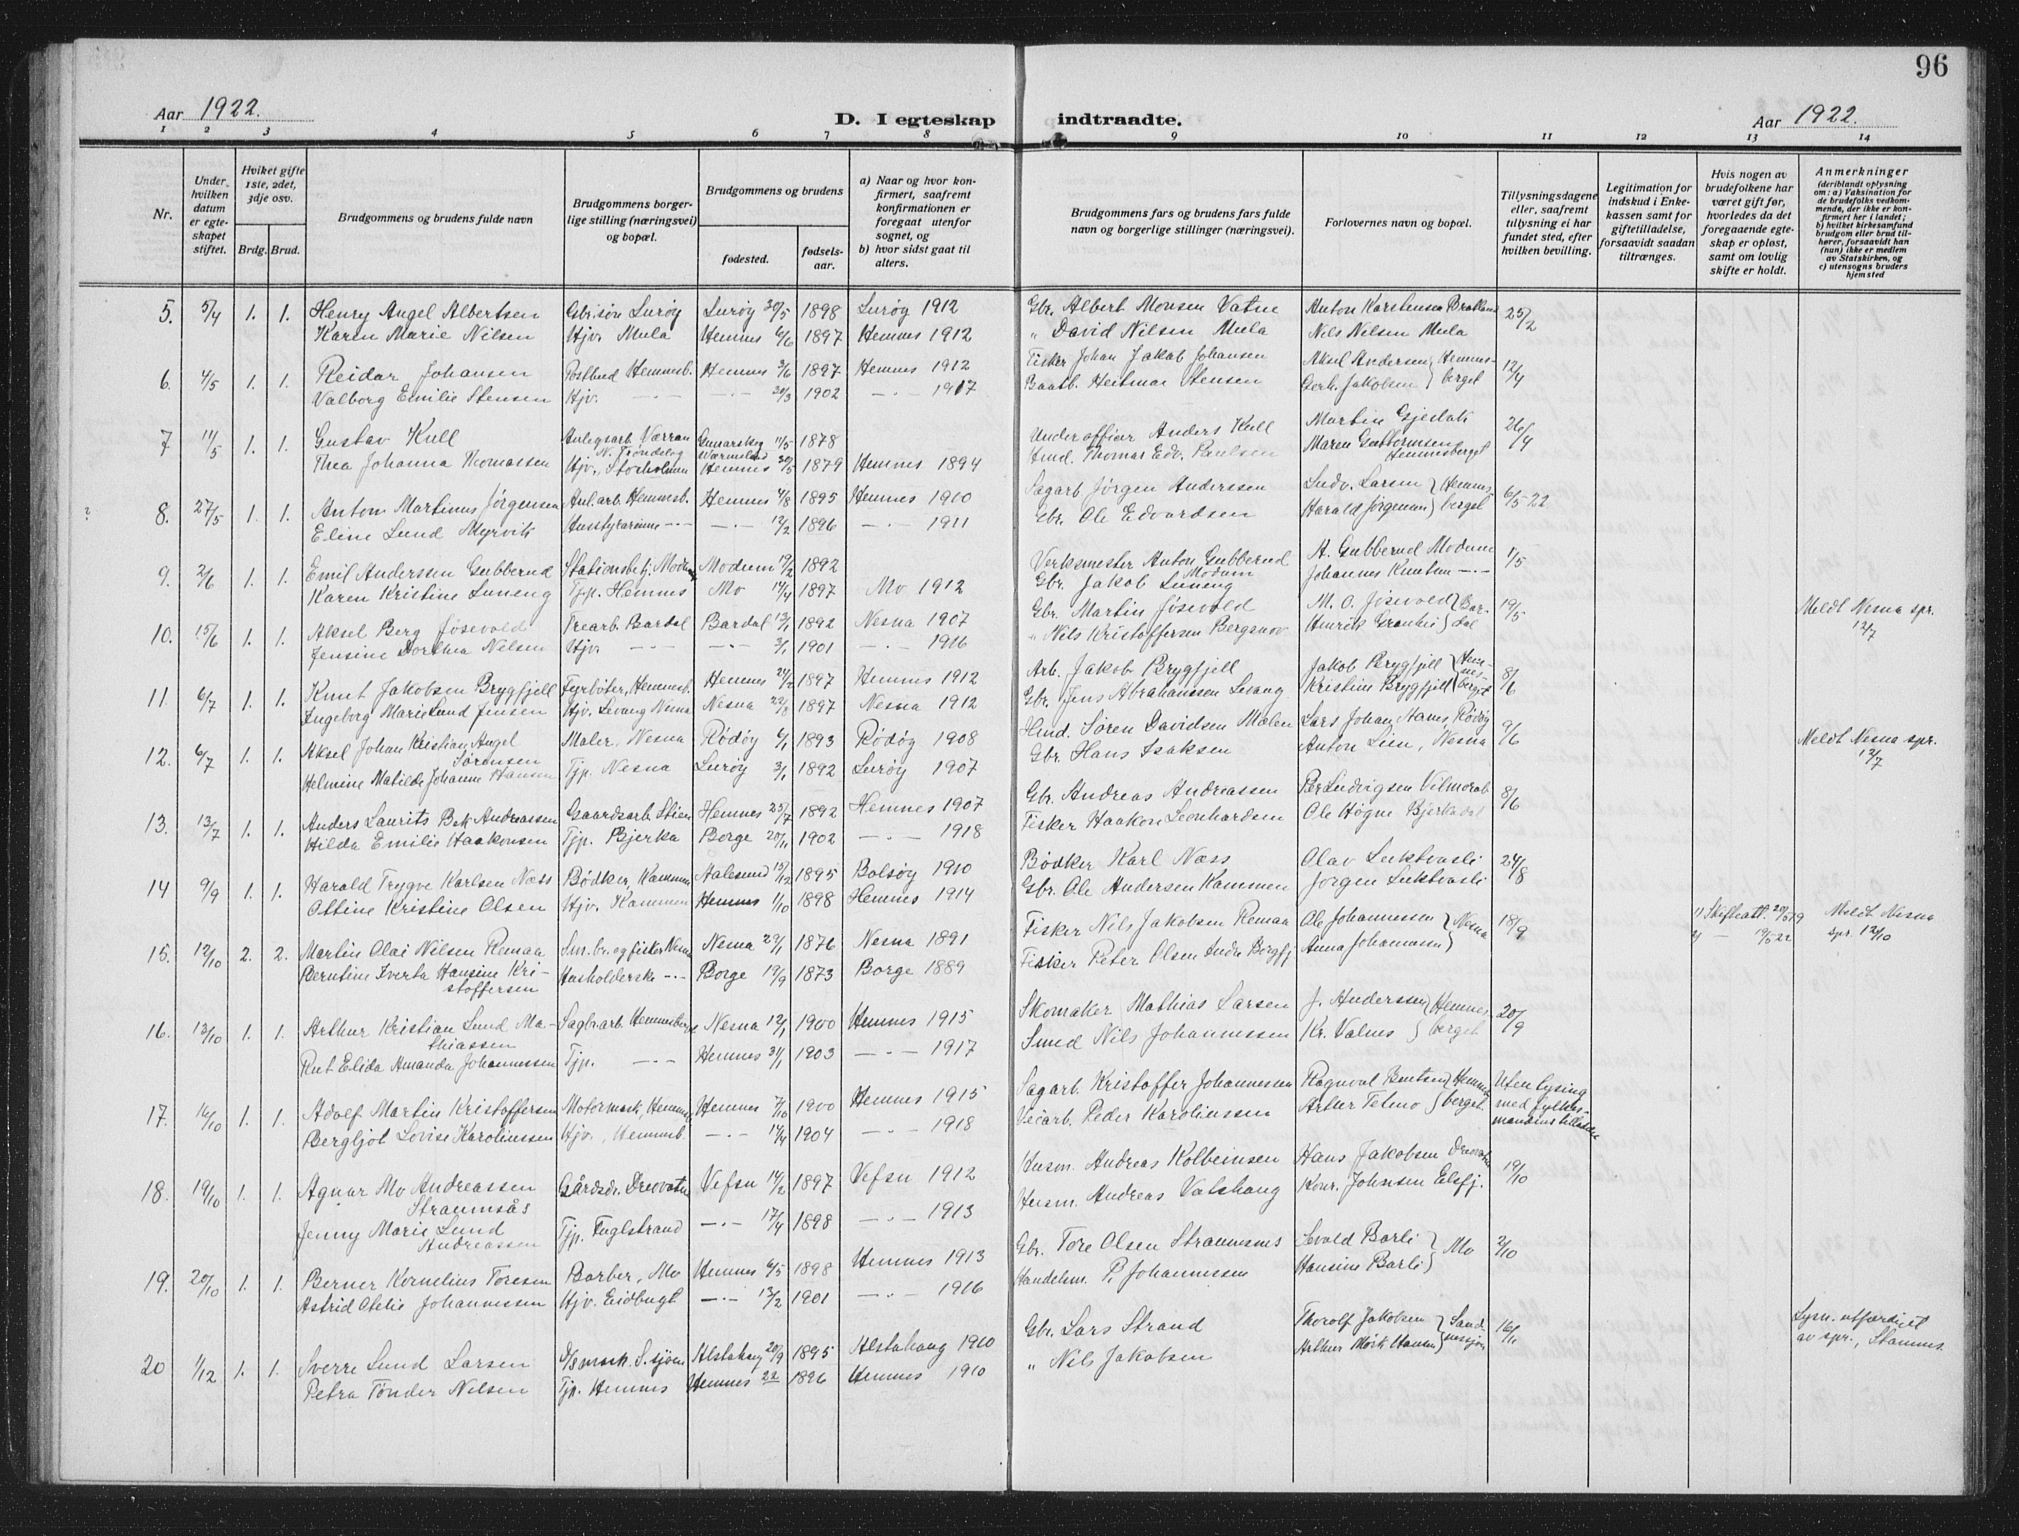 96
Aar 1922.
D. I egteskap indtraadte.
Aar 1922.
1 2 3 4 5 6 7 8 9 10 11 12 13 14
Nr.
Under hvilken datum er egteskapet stiftet.
Hviket gifte 1ste, 2det, 3dje osv.
Brdg. Brud.
Brudgommens og brudens fulde navn
Brudgommens borgerlige stilling (næringsvei) og bopæl.
Brudgommens og brudens
fødested.
fødselsaar.
a) Naar og hvor konfirmert, saafremt konfirmationen er foregaat utenfor sognet, og
b) hvor sidst gaat til alters.
Brudgommens fars og brudens fars fulde navn og borgerlige stillinger (næringsvei).
Forlovernes navn og bopæl.
Tillysningsdagene eller, saafremt tillysning ei har fundet sted, efter hvilken bevilling.
Legitimation for indskud i Enkekassen samt for giftetilladelse, forsaavidt saadan tiltrænges.
Hvis nogen av brudefolkene har været gift før, hvorledes da det foregaaende egteskap er opløst, samt om lovlig skifte er holdt.
Anmerkninger (deriblandt oplysning om: a) Vaksination for de brudefolks vedkommende, der ikke er konfirmert her i landet; b) hvilket kirkesamfund brudgom eller brud tilhører, forsaavidt han (hun) ikke er medlem av Statskirken, og c) utensogns bruders hjemsted
5. 5/4 1. 1. Henry Angel Albertsen Gbr.søn Lurøy Lurøy 30/5 1898 Lurøy 1912 Gbr. Albert Monsen Vatne Anton Karstensen 25/2
Karen Marie Nilsen Hjv. Mula Hemnes 6/6 1897 Hemnes 1912 " David Nilsen Mula Nils Nilsen Mula
6. 4/5 1. 1. Reidar Johansen Postbud Hemnesb. Hemnes 3/6 1897 Hemnes 1912 Fisker Johan Jakob Johansen Aksel Andersen } Hemnes- 12/4
Valborg Emilie Stensen Hjv. — — — · — 30/3 1902 — · — 1917 Baatb. Heitmar Stensen Gerh. Jakobsen } berget
7 11/5 1. 1. Gustav Kull Anlegsarb. Værran N. Trøndelag Gunarskog Wærmland 11/5 1878 Underofficer Anders Kull Martin Gjesbak 26/4
Thea Johanna Thomassen Hjv. Storholmen Hemnes 30/5 1879 Hemnes 1894 Thomas Edv. Paulsen Maren Guttormsen Hemnesberget
? 8. 27/5 1. 1. Anton Martinus Jørgensen Anl.arb. Hemnesb. Hemnes 4/8 1895 Hemnes 1910 Sagarb. Jørgen Anderssen Ludv. Larsen } Hemnes- 6/5-22
Eline Lund Myrvik Husstyrarinne — · — — · — 12/2 1896 — · — 1911 Gbr. Ole Edvardsen Harald Jørgensen } berget
9. 2/6 1. 1. Emil Anderssen Gubberud Stationsbetj. Modum Modum 19/2 1892 Verksmester Anton Gubberud Modum A. Gubberud Modum 1/5
Karen Kristine Luneng Tjp. Hemnes Mo 14/4 1897 Mo 1912 Gbr. Jakob Luneng Johannes Knutsen — · —
10. 15/6 1. 1. Aksel Berg Jøsevold Trearb. Bardal Bardal 13/1 1892 Nesna 1907 Gbr. Martin Jøsevold M. O. Jøsevold } Bar- 19/5 Meldt Nesna spr. 12/7
Jensine Dorthea Nilsen Hjv. — — — — 3/1 1901 — · — 1916 " Nils Kristoffersen Bergsnov Henrik } dal
11. 6/7 1. 1. Knut Jakobsen Brygfjell Fyrbøter, Hemnesb. Hemnes 24/2 1897 Hemnes 1912 Arb. Jakob Brygfjell Jakob Brygfjell } Hem- 8/6
Ingeborg Marie Lund Jensen Hjv. Levang Nesna Nesna 22/8 1897 Nesna 1912 Gbr. Jens Abrahamssen Levang Kristine Brygfjell } nes- berget
12. 6/7 1. 1. Aksel Johan Kristian Angel Sørensen Maler, Nesna Rødøy 6/1 1893 Rødøy 1908 Hmd. Søren Davidsen Mølen Lars Johan Hans, Rødøy 9/6 Meldt Nesna spr. 12/7
Helmine Matilde Johanne Hansen Tjp. Nesna Lurøy 3/1 1892 Lurøy 1907 Gbr. Hans Isaksen Anton Lien, Nesna
13. 13/7 1. 1. Anders Laurits Bek Andreassen Gaardsarb. Stien Hemnes 25/7 1892 Hemnes 1907 Gbr. Andreas Andreassen Per Ludvigsen 8/6
Hilda Emilie Haakonsen Tjp. Bjerka Borge 20/1 1902 — · — 1918 Fisker Haakon Leonhardsen Ole Høgne Bjerkadal
14 9/9 1. 1. Harald Trygve Karlsen Næss Bødker, Kammen Aalesund 15/12 1895 Bolsøy 1910 Bødker Karl Næss Olav Luktvasli 24/8
Ottine Kristine Olsen Hjv. Kammen Hemnes 1/10 1898 Hemnes 1914 Gbr. Ole Andersen Kammen Jørgen Luktvasli
15. 12/10 2. 2. Martin Olai Nilsen Remaa Sm. br. og fisker Nesna Nesna 29/1 1876 Nesna 1891 Fisker Nils Jakobsen Remaa Ole Johannessen } Nesna 18/9 1) Skifteatt. 20/5 19 Meldt Nesna
Berntine Iverta Hansine Kristoffersen Husholderske — · — Borge 19/9 1873 Borge 1889 Fisker Peter Olsen Indre Borgfj Anna Johannesen } 2) — 19/5 22 spr. 12/10
16. 13/10 1. 1. Arthur Kristian Lund Mathiassen Sagbr.arb. Hemnesberget Nesna 12/1 1900 Hemnes 1915 Skomaker Mathias Larsen J. Anderssen } Hemnes 20/9
Rut Elida Amanda Johannessen Tjp. — · — Hemnes 31/1 1903 — · — 1917 Smed Nils Johannessen Kr. Valnes } berget
17. 16/10 1. 1. Adolf Martin Kristoffersen Motormask, Hemnes Hemnes 7/10 1900 Hemnes 1915 Sagarb. Kristoffer Johannessen Ragnvat Bentsen } Hemnes Uten lysing
Bergljot Lovise Karolinssen Hjv., Hemnesb. — · — 14/4 1904 — · — 1918 Veiarb. Peder Karolinssen Arthur Telmo } berget. med fylkesmandens tilladelse
18. 19/10 1. 1. Agnar Mo Andreassen Straumsås Gårdsdr. Drevatne Vefsn 14/2 1897 Vefsn 1912 Husm. Andreas Kolbeinsen Hans Jakobsen Drevatne 19/10
Jenny Marie Lund Andreassen Tjp. Fuglstrand — · — 17/4 1898 — · — 1913 Husm. Andreas Valshaug Konr. Johnsen Elsfj.
19. 20/10 1. 1. Berner Kornelius Toresen Barber, Mo Hemnes 6/5 1898 Hemnes 1913 Gbr. Tore Olsen Straumsnes Sevald Barli } Mo 2/10
Astrid Otelie Johannessen Hjv. Eidbugt — · — 13/2 1901 — · — 1916 Handelsm. P. Johannessen Hansine Barli }
20 1/12 1. 1. Sverre Lund Larsen D/S mask. S.sjøen Alstahaug 20/9 1895 Alstahaug 1910 Gbr. Lars Strand Thorolf Jakobsen } Sand 16/11 Lysn. utfærdiget
Petra Tønder Nilsen Tjp. Hemnes Hemnes 22 1896 Hemnes 1910 " Nils Jakobsen Arthur Mørk Hansen } nessjøen av spr., Stamnes